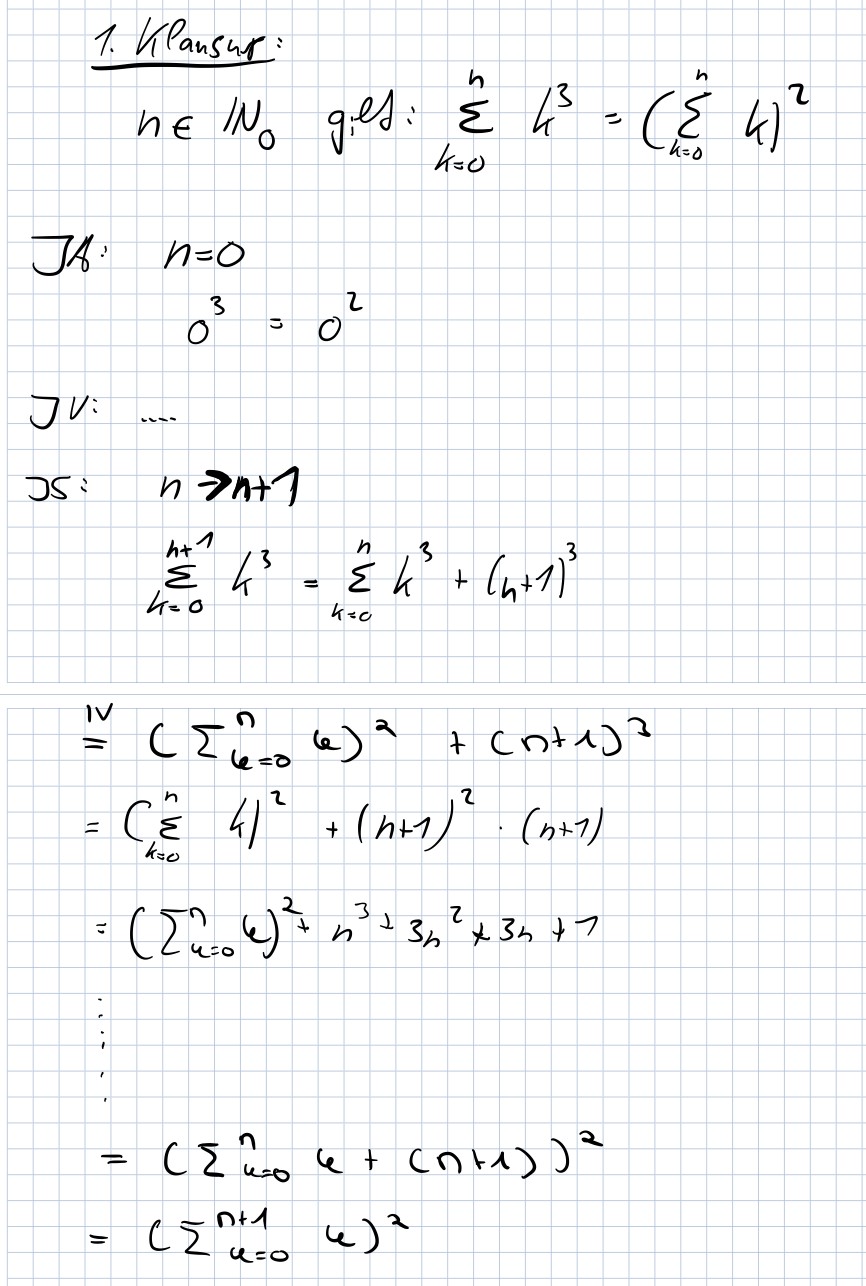 1. Klausur:
n ∈ ℕ₀ gilt: ∑_{k=0}^{n} k³ = (∑_{k=0}^{n} k)²
IA: n=0
0³ = 0²
IV: ....
IS: n → n+1
∑_{k=0}^{n+1} k³ = ∑_{k=0}^{n} k³ + (n+1)³
IV
= (∑_{k=0}^{n} k)² + (n+1)³
= (∑_{k=0}^{n} k)² + (n+1)² · (n+1)
= (∑_{k=0}^{n} k)² + n³ + 3n² + 3n + 1
⋮
= (∑_{k=0}^{n} k + (n+1))²
= (∑_{k=0}^{n+1} k)²